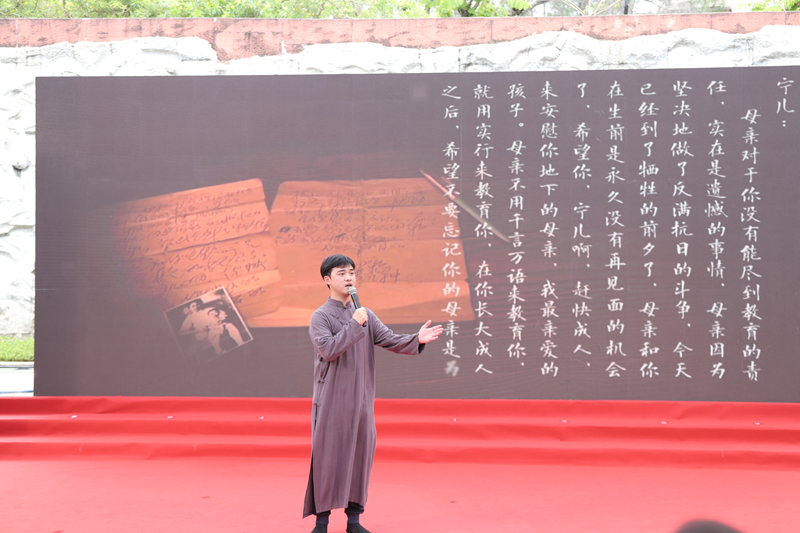 宁儿：
母亲对于你没有能尽到教育的责
任，实在是遗憾的事情。母亲因为
坚决地做了反满抗日的斗争，今天
已经到了牺牲的前夕了，母亲和你
在生前是永久没有再见面的机会
了。希望你，宁儿啊，赶快成人，
来安慰你地下的母亲，我最亲爱的
孩子。母亲不用千言万语来教育你，
就用实行来教育你，在你长大成人
之后，希望不要忘记你的母亲是为